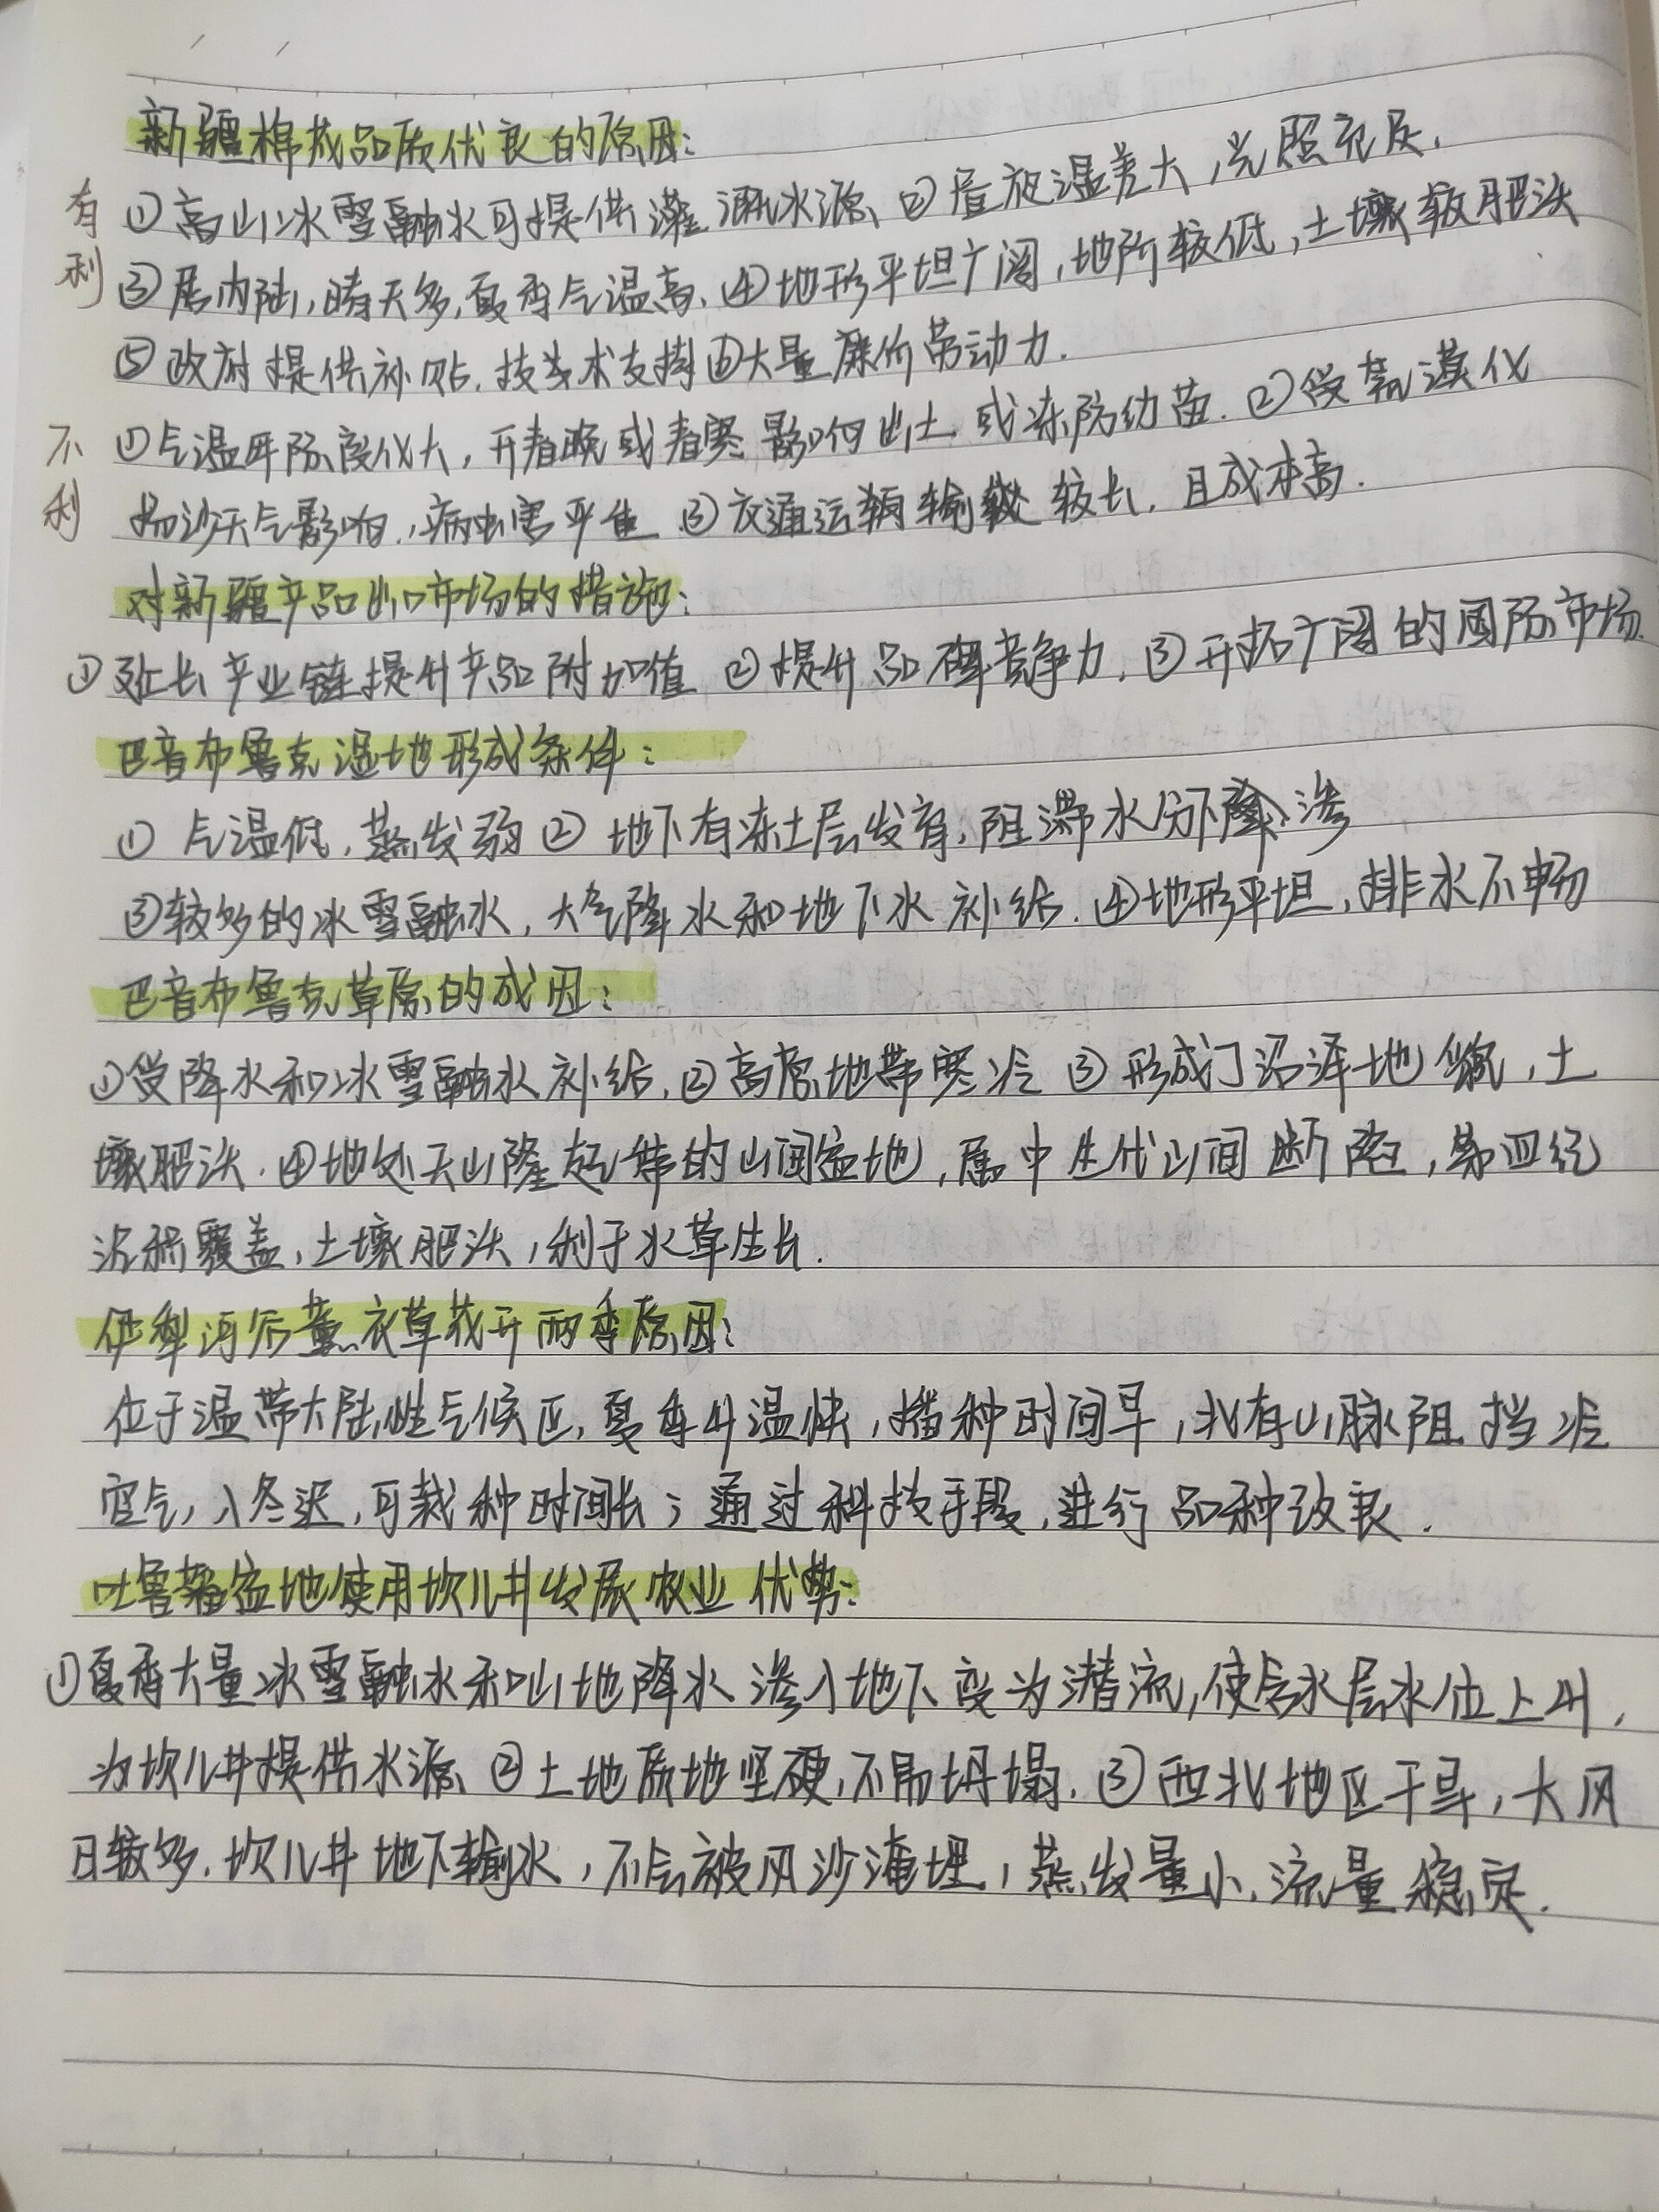 新疆棉花品质优良的原因:
有利 ①高山冰雪融水可提供灌溉水源 ②昼夜温差大,光照充足.
③居内陆,晴天多,夏季气温高. ④地形平坦广阔,地价较低,土壤较肥沃
⑤政府提供补贴.技术支持 ⑥大量廉价劳动力.
不利 ①气温年际变化大,开春晚或春寒影响出土或冻伤幼苗. ②受荒漠化
扬沙天气影响,病虫害 ③交通运输 较长,且成本高.
对新疆产品出口市场的措施:
①延长产业链提升产品附加值 ②提升品牌竞争力. ③开拓广阔的国际市场.
巴音布鲁克湿地形成条件:
① 气温低,蒸发弱 ② 地下有冻土层发育,阻滞水分下渗
③较多的冰雪融水,大气降水和地下水补给. ④地形平坦,排水不畅
巴音布鲁克草原的成因:
①受降水和冰雪融水补给. ②高原地带寒冷 ③形成了沼泽地貌,土
壤肥沃. ④地处天山隆起带的山间盆地,属中生代山间断陷,第四纪
沉积覆盖,土壤肥沃,利于水草生长.
伊犁河谷薰衣草花开两季原因:
位于温带大陆性气候区,夏季升温快,播种时间早,北有山脉阻挡冷
空气,入冬迟,可栽种时间长;通过科技手段,进行品种改良.
吐鲁番盆地使用坎儿井发展农业优势:
①夏季大量冰雪融水和山地降水渗入地下变为潜流,使含水层水位上升,
为坎儿井提供水源 ②土地质地坚硬,不易坍塌. ③西北地区干旱,大风
日较多.坎儿井地下输水,不会被风沙淹埋,蒸发量小,流量稳定.